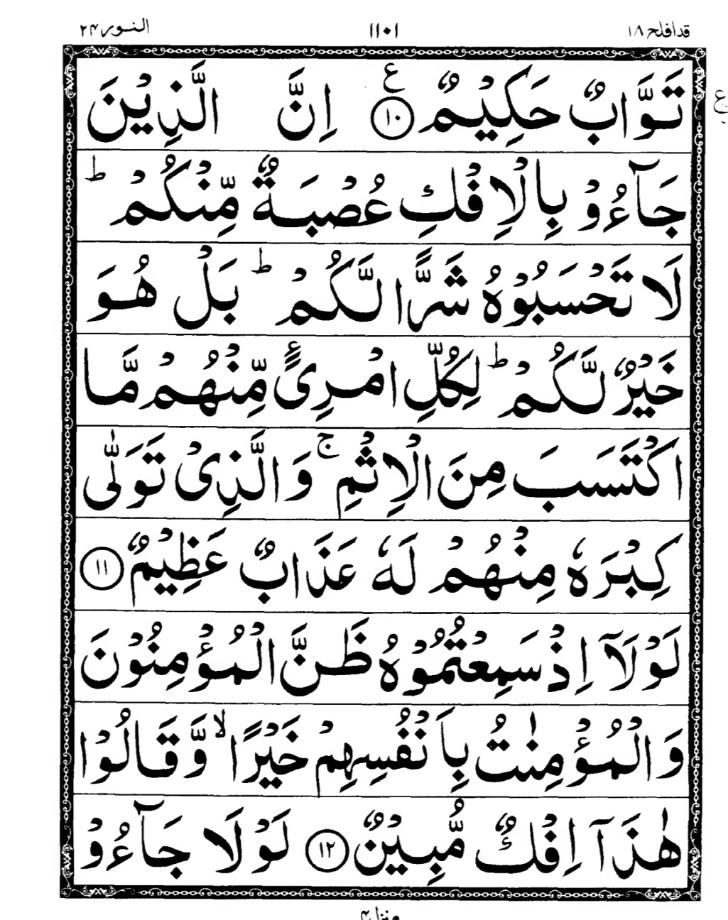 قدافلح ۱۸ ۱۱۰۱ النور ۲۴
تَوَّابٌ حَكِيْمٌ ﴿۱۰﴾ ع اِنَّ الَّذِيْنَ
ع
جَآءُوْ بِالْاِفْكِ عُصْبَةٌ مِّنْكُمْ ؕ
لَا تَحْسَبُوْهُ شَرًّا لَّكُمْ ؕ بَلْ هُوَ
خَيْرٌ لَّكُمْ ؕ لِكُلِّ امْرِیًٴ مِّنْهُمْ مَّا
اكْتَسَبَ مِنَ الْاِثْمِ ۚ وَ الَّذِیْ تَوَلّٰی
كِبْرَهٗ مِنْهُمْ لَهٗ عَذَابٌ عَظِيْمٌ ﴿۱۱﴾
لَوْلَاۤ اِذْ سَمِعْتُمُوْهُ ظَنَّ الْمُؤْمِنُوْنَ
وَ الْمُؤْمِنٰتُ بِاَنْفُسِهِمْ خَيْرًا ۙ وَّ قَالُوْا
هٰذَاۤ اِفْكٌ مُّبِيْنٌ ﴿۱۲﴾ لَوْلَا جَآءُوْ
منزل ۴